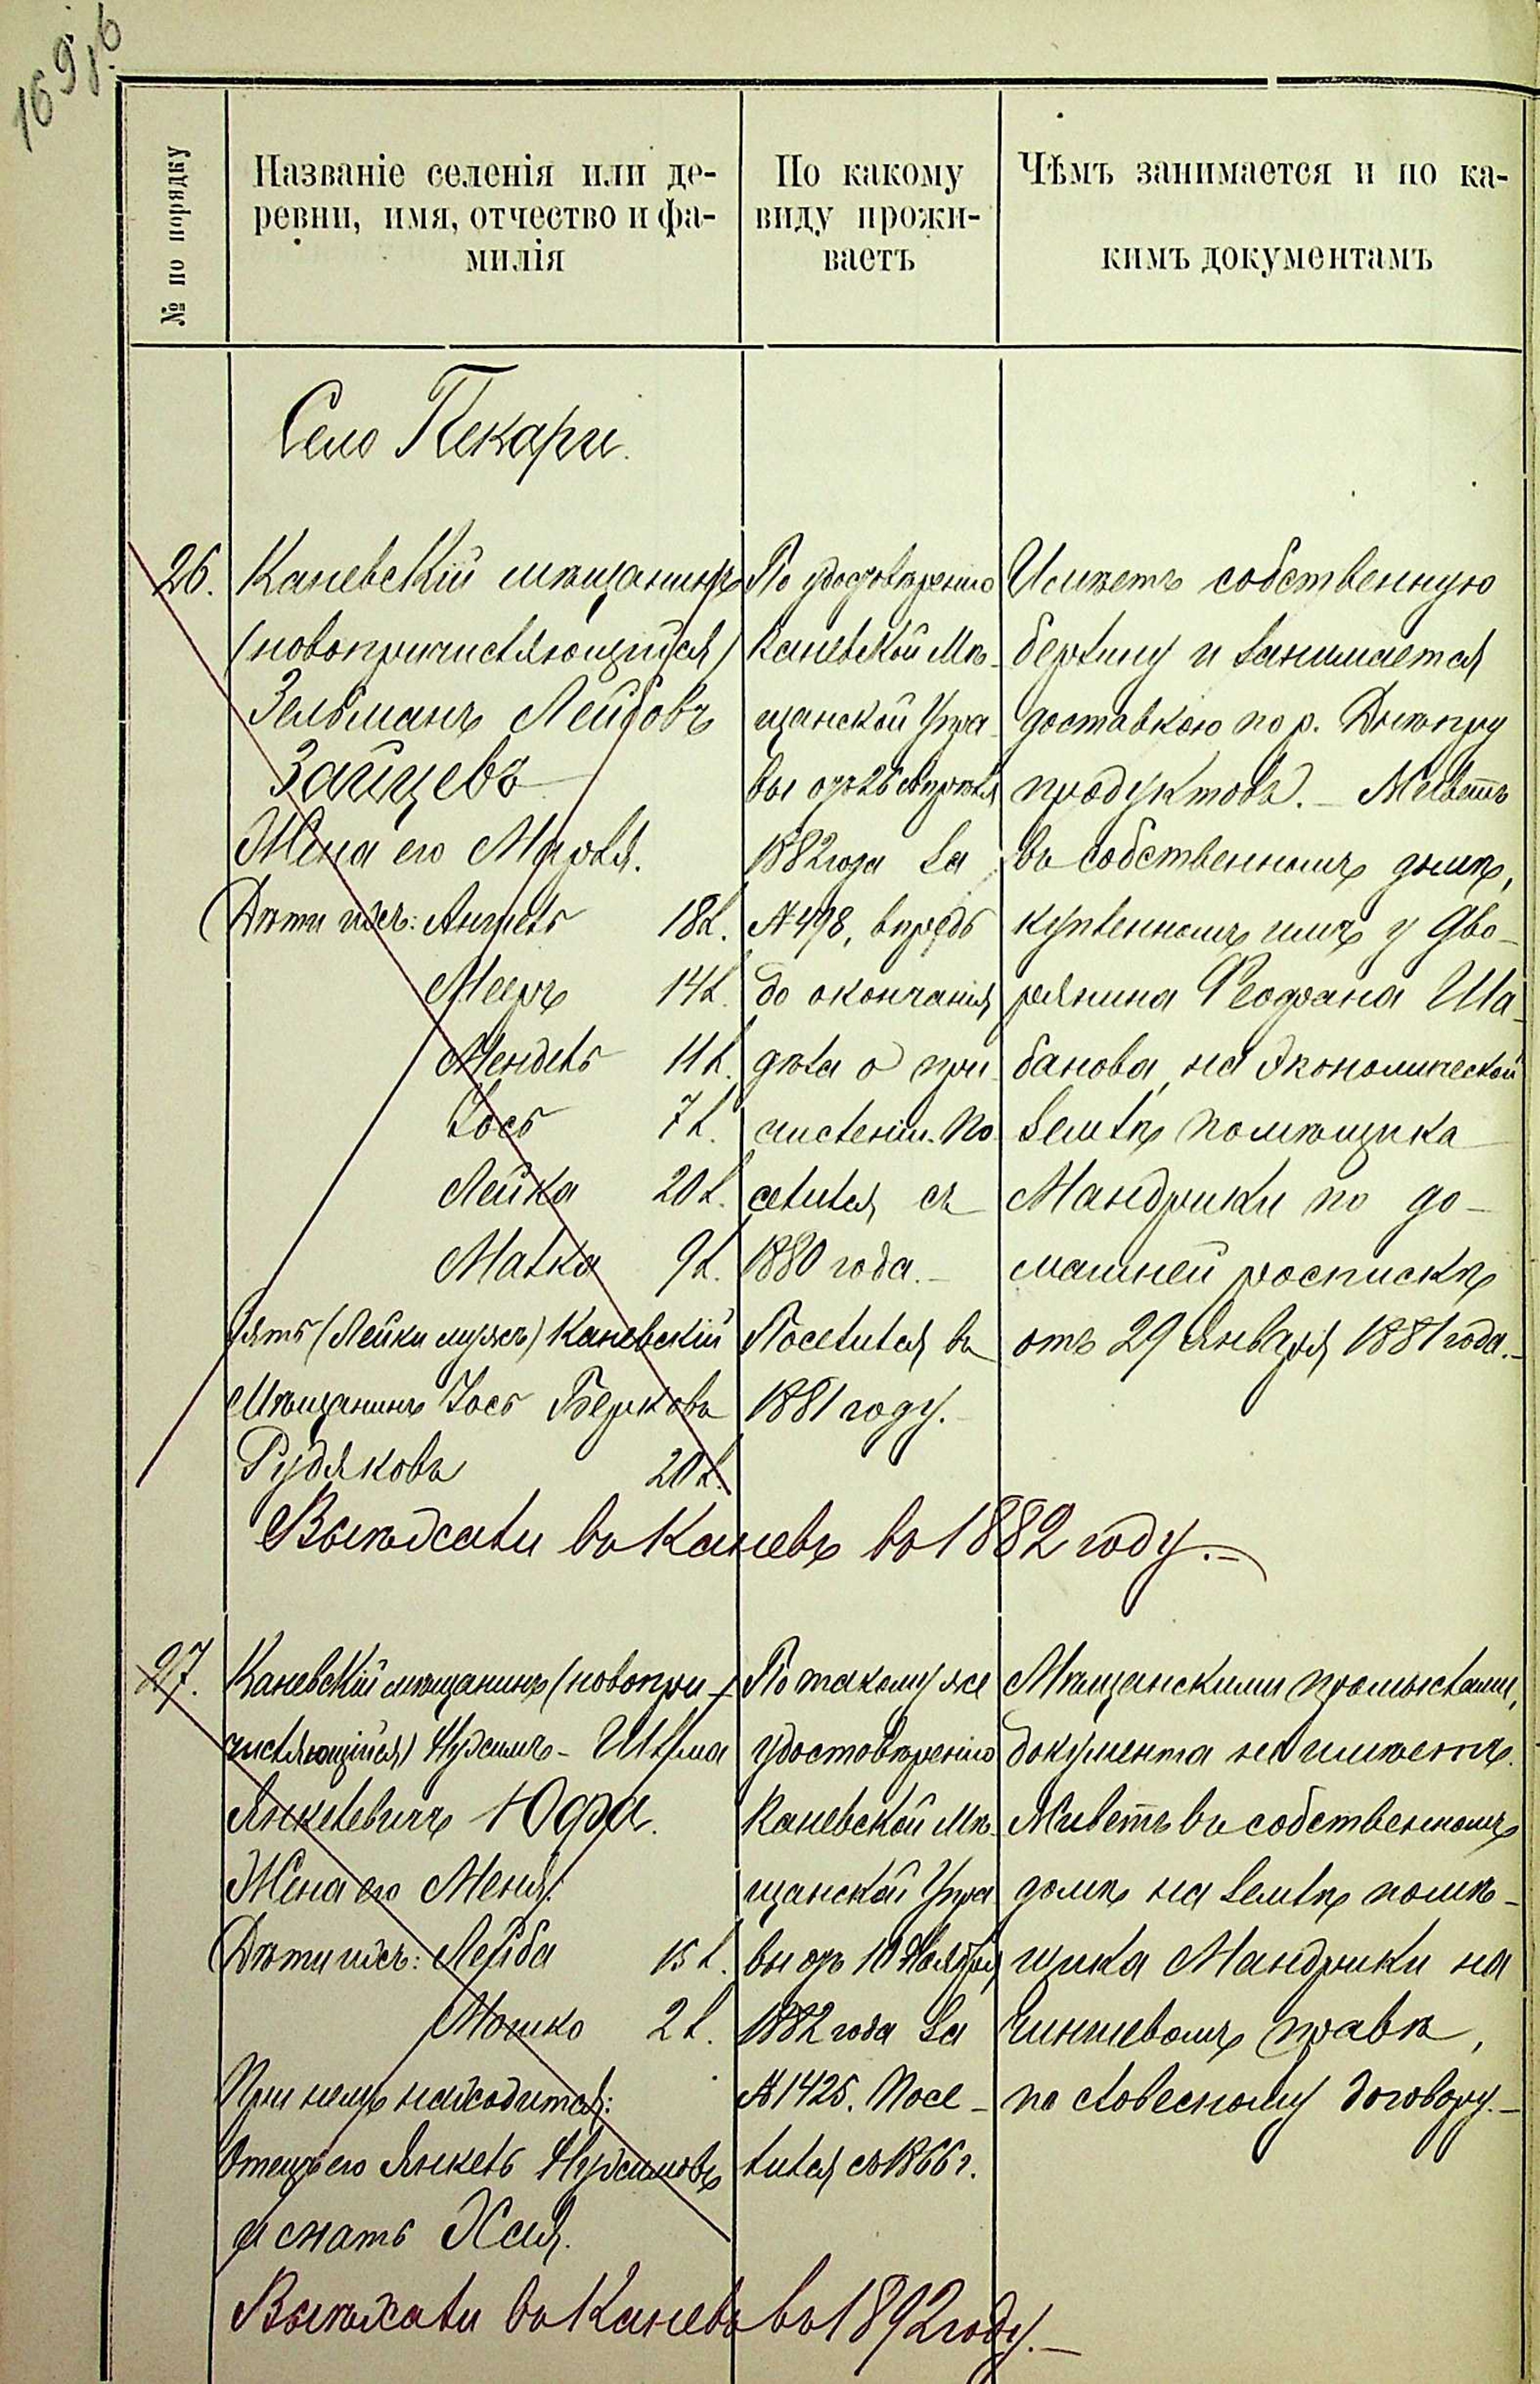 169 об
№ по порядку
Названіе селенія или де-
ревни, имя, отчество и фа-
милія
По какому
виду прожи-
ваетъ
Чѣмъ занимается и по ка-
кимъ документамъ
Село Пекари.
26.
Каневскій мѣщанинъ
(новопричисляющійся)
Зельманъ Лейбовъ
Зайцевъ
Жена его Марья.
Дѣти ихъ: Аншель 18 л.
Мееръ 14 л.
Мендель 11 л.
Іось 7 л.
Лейка 20 л.
Малка 9 л.
Зять (Лейки мужъ) Каневскій
Мѣщанинъ Іось Берковъ
Рудяковъ 20 л.
По удостовѣренію
Каневской Мѣ-
щанской Упра-
вы отъ 26 апрѣля
1882 года за
№ 498, впредь
до окончанія
дѣла о при-
численіи. По-
селился съ
1880 года.-
Поселился въ
1881 году.-
Имѣетъ собственную
берлину и занимается
доставкою по р. Днѣпру
продуктовъ. - Живетъ
въ собственномъ домѣ,
купленномъ имъ у Дво-
рянина Феофана Ша-
банова, на экономической
землѣ помѣщика
Мандрики по до-
машней роспискѣ
отъ 29 Января 1881 года.-
Выѣхали въ Каневъ въ 1882 году.-
27.
Каневскій мѣщанинъ (новопри-
числяющійся) Нухимъ-Шлёма
Янкелевичъ Юфа.
Жена его Меня.
Дѣти ихъ: Лейба 15 л.
Мошко 2 л.
При немъ находится:
Отецъ его Янкель Нухимовъ
и мать Хая.
По такому же
удостовѣренію
Каневской Мѣ-
щанской Упра-
вы отъ 10 Ноября
1882 года за
№ 1425. Посе-
лился съ 1866 г.
Мѣщанскими промыслами,
документа не имѣетъ.
Живетъ въ собственномъ
домѣ на землѣ помѣ-
щика Мандрики на
Чиншевомъ правѣ,
по словесному договору.-
Выѣхали въ Каневъ въ 1892 году.-